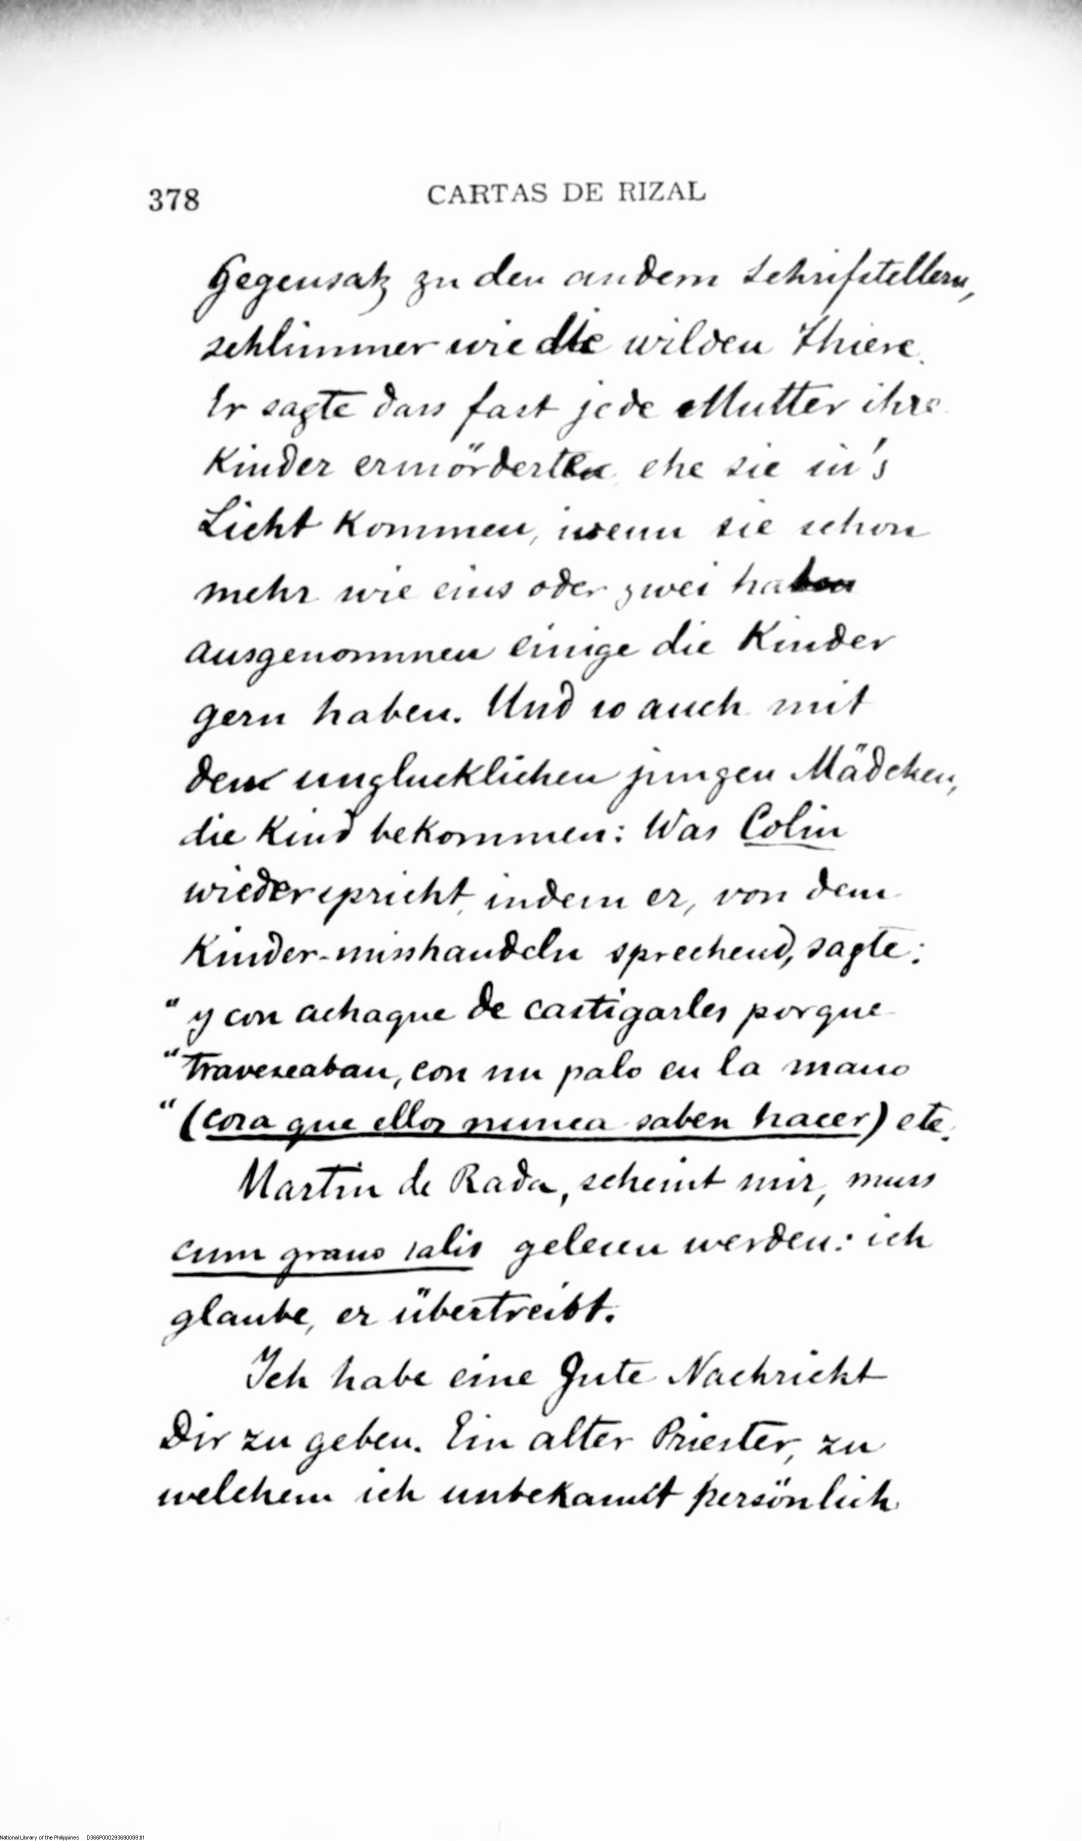 378 CARTAS DE RIZAL
Gegensatz zu den andern Schrifstellern,
schlimmer wie die wilden Thiere.
Er sagte dass fast jede Mutter ihre
Kinder ermörderten ehe sie in's
Licht kommen, wenn sie schon
mehr wie eins oder zwei haben
ausgenommen einige die Kinder
gern haben. Und so auch mit
den unglucklichen jungen Mädchen,
die Kind bekommen: Was Colin
wiederspricht, indem er, von dem
Kinder-misshandeln sprechend, sagte:
"y con achaque de castigarles porque
"traveseaban, con un palo en la mano
"(cosa que ellos nunca saben hacer) etc.
Martin de Rada, scheint mir, muss
cum grano salis gelesen werden: ich
glaube, er übertreibt.
Ich habe eine gute Nachricht
Dir zu geben. Ein alter Priester, zu
welchem ich unbekannt persönlich
National Library of the Philippines